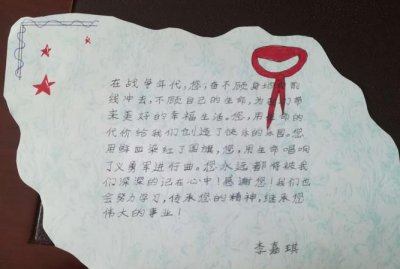 在战争年代,您,奋不顾身地向前
线冲去,不顾自己的生命,为我们带
来更好的幸福生活。您,用生命的
代价给我们创造了快乐的今日。您
用鲜血染红了国旗,您,用生命唱响
了义勇军进行曲。您永远都将被我
们深深的记在心中!感谢您!我们也
会努力学习,传承您的精神,继承您
伟大的事业!
李嘉琪